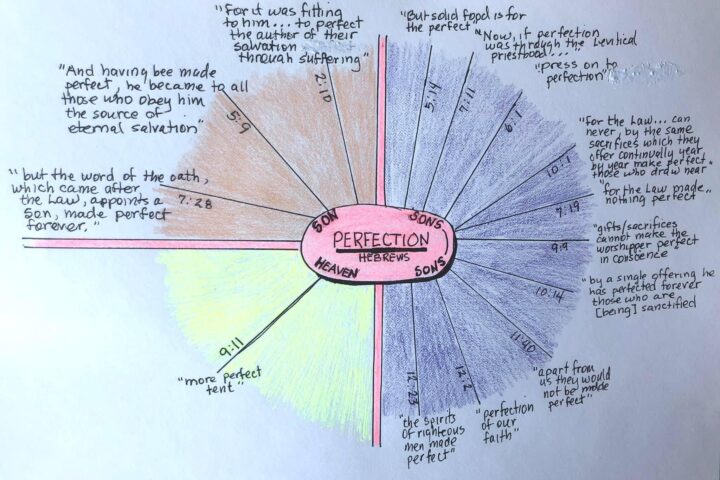 "For it was fitting
to him... to perfect
the author of their
salvation
through suffering"
2:10
"And having bee made
perfect, he became to all
those who obey him
the source of
eternal salvation"
5:9
"but the word of the oath,
which came after
the Law, appoints a
Son, made perfect
forever."
7:28
"But solid food is for
the perfect"
5:14
"Now, if perfection
was through the Levitical
priesthood..."
7:11
"press on to
perfection"
6:1
"for the Law... can
never, by the same
sacrifices which they
offer continually year
by year make perfect
those who draw near"
10:1
"for the Law made..
nothing perfect"
7:19
"gifts/sacrifices
cannot make the
worshipper perfect
in conscence
9:9
"by a single offering he
has perfected forever
those who are
[being] sanctified
10:14
"apart from
us they would
not be made
perfect"
11:40
"perfection
of our
faith"
12:2
"the spirits
of righteous
men made
perfect"
12:23
"more perfect
tent"
9:11
SON
SONS
PERFECTION
HEBREWS
HEAVEN
SONS